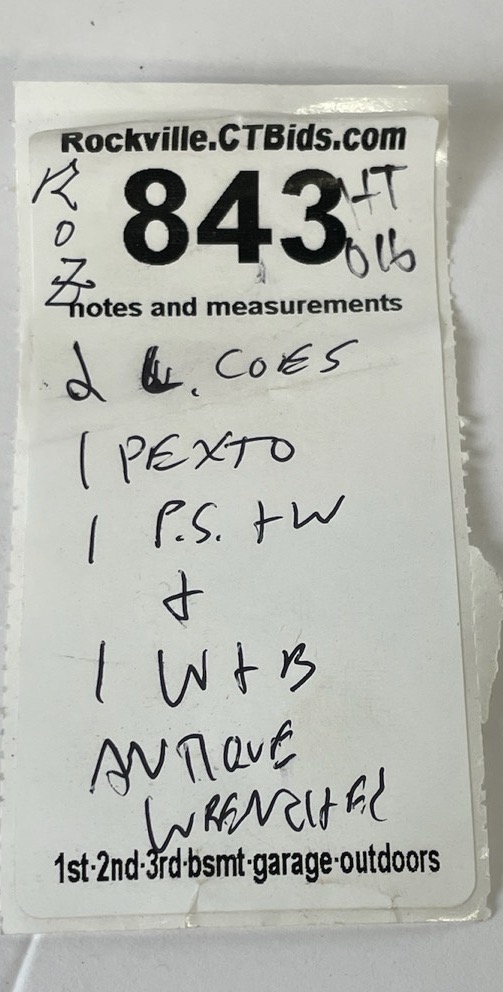 Rockville.CTBids.com
ROZ
843
notes and measurements
2 L. COES
1 PEXTO
1 P.S. + W
+
1 W + B
ANTIQUE
WRENCHES
1st·2nd·3rd·bsmt·garage·outdoors